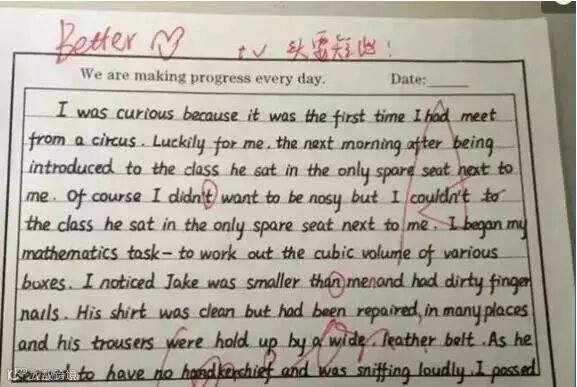 Better
tv 头要短出!
We are making progress every day. Date:
I was curious because it was the first time I had meet
from a circus. Luckily for me, the next morning after being
introduced to the class he sat in the only spare seat next to
me. Of course I didn't want to be nosy but I couldn't to
the class he sat in the only spare seat next to me. I began my
mathematics task - to work out the cubic volume of various
boxes. I noticed Jake was smaller than men and had dirty finger
nails. His shirt was clean but had been repaired, in many places
and his trousers were hold up by a wide, leather belt. As he
to have no handkerchief and was sniffing loudly. I passed